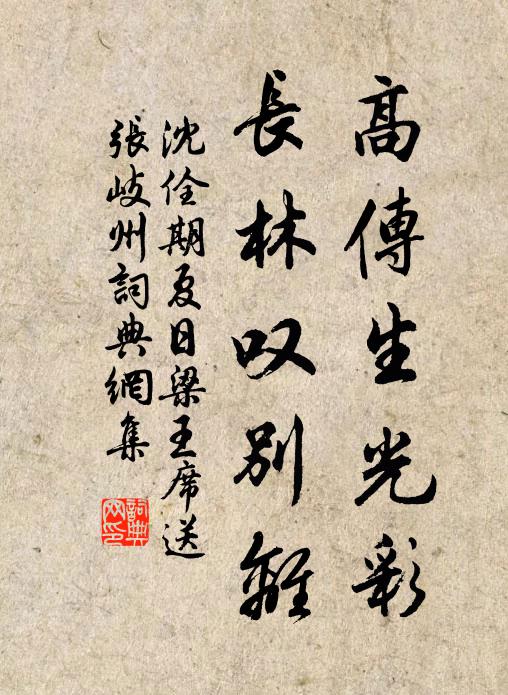 高傳生光彩
長林叹別離
沈佺期夏日梁王席送
張岐州詞典網集
詞典
网印